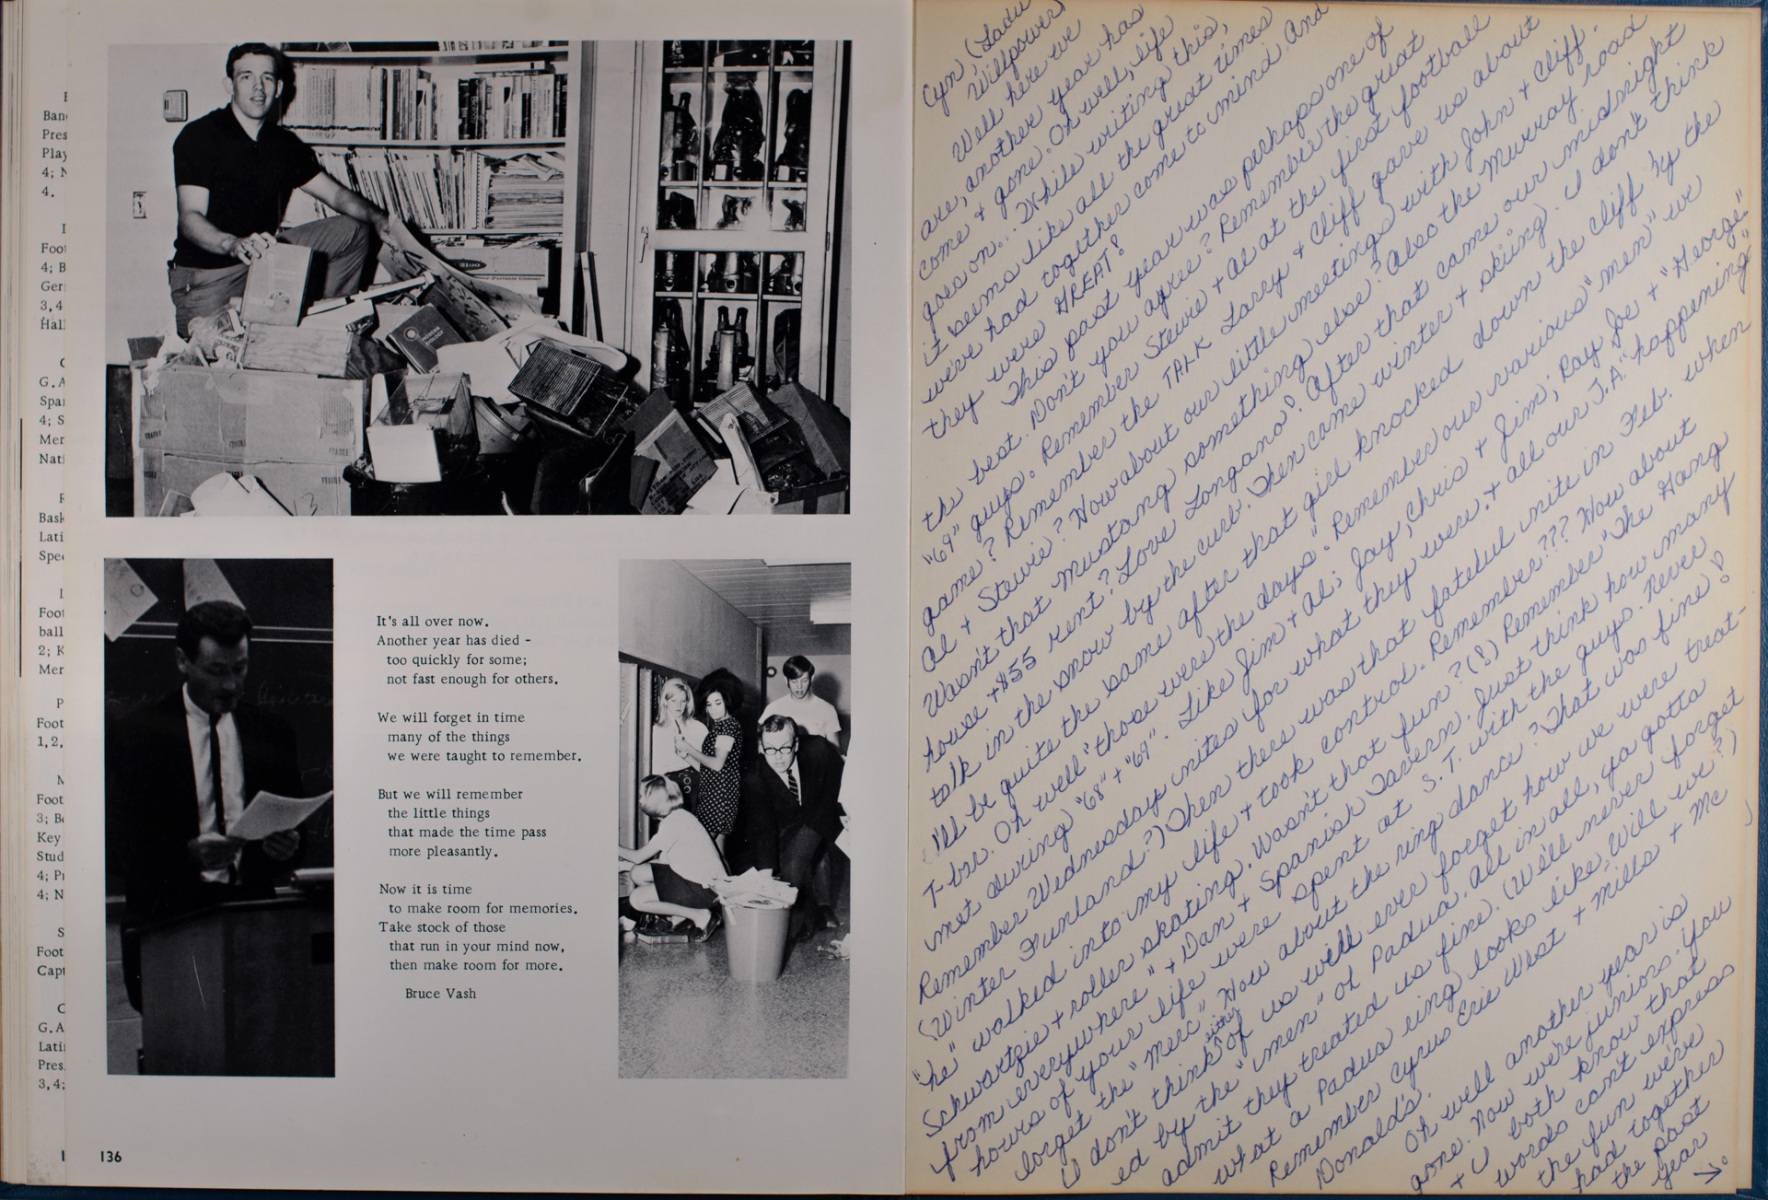 Ban
Pres
Play
4; N
4.
Foot
4; B
Ger
3,4
Hall
G.A
Spa
4; S
Mer
Nati
Bask
Lati
Spe
Foot
ball
2; K
Mer
Foot
1,2,
Foot
3; B
Key
Stud
4; P
4; N
Foot
Capt
G.A
Lati
Pres
3,4;
It's all over now.
Another year has died -
too quickly for some;
not fast enough for others.
We will forget in time
many of the things
we were taught to remember.
But we will remember
the little things
that made the time pass
more pleasantly.
Now it is time
to make room for memories.
Take stock of those
that run in your mind now,
then make room for more.
Bruce Vash
136
Cyn (Lady
Willpower)
Well here we
are, another year has
come + gone. Oh well, life
goes on... While writing this,
it seems like all the great times
we've had together come to mind. And
they were GREAT!
This past year was perhaps one of
the best. Don't you agree? Remember the great
"69" guys. Remember Stewie + Al at the first football
game? Remember the TALK Larry + Cliff gave us about
Al + Stewie? How about our little meetings with John + Cliff.
Wasn't that Mustang something else? Also the Murray road
house + 855 rent? Love Longano! After that came our midnight
talk in the snow by the curb. Then came winter + skiing. I don't think
I'll be quite the same after that girl knocked down the cliff by the
T-bar. Oh well "those were the days". Remember our various "men" we
met during "68" + "69". Like Jim + Al; Jay, Chris + Jim; Ray, Joe + "George".
Remember Wednesday nites for what they were, + all our J.A. "happening"
(Winter Funland?) Then there was that fateful nite in Feb. when
"he" walked into my life + took control. Remember??? How about
Schwartzie + roller skating. Wasn't that fun? (!) Remember "The Gang
from everywhere" + Dan + Spanish Tavern. Just think how many
hours of your life were spent at S.T. with the guys. Never
forget the "Merc". How about the ring dance? That was fine!
I don't think either of us will ever forget how we were treat-
ed by the "men" of Padua. All in all, ya gotta
admit they treated us fine. (We'll never forget
what a Padua ring looks like, will we?)
Remember Cyrus Erie West + Mills + Mc
Donald's.
Oh well another year is
gone. Now we're juniors. You
+ I both know that
words can't express
the fun we've
had together
the past
year